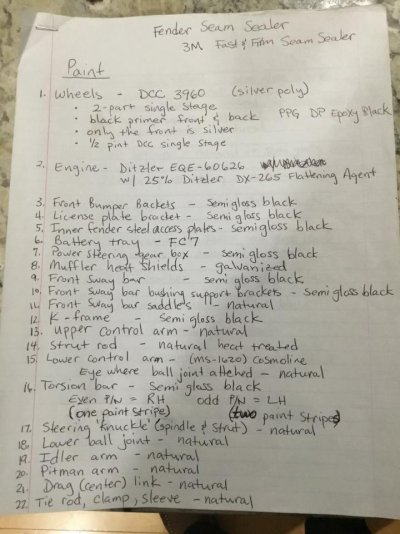 Fender Seam Sealer
3M Fast & Firm Seam Sealer
Paint
1. Wheels - DCC 3960 (silver poly)
• 2-part single stage
• black primer front & back PPG DP Epoxy Black
• only the front is silver
• 1/2 pint DCC single stage
2. Engine - Ditzler EQE-60626
w/ 25% Ditzler DX-265 Flattening Agent
3. Front Bumper Backets - Semigloss black
4. License plate bracket - Semi gloss black
5. Inner fender steel access plates - semigloss black
6. Battery tray - FC7
7. Power Steering gear box - semi gloss black
8. Muffler heat shields - galvanized
9. Front Sway bar - semi gloss black
10. Front Sway bar bushing support brackets - Semigloss black
11. Front Sway bar saddle's - natural
12. K-frame - Semi gloss black
13. upper control arm - natural
14. Strut rod - natural heat treated
15. Lower control arm - (MS-1620) Cosmoline
Eye where ball joint attched - natural
16. Torsion bar - Semigloss black
Even P/N = RH odd P/N = LH
(one paint stripe) (two paint stripes)
17. Steering 'Knuckle' (spindle & strut) - natural
18. Lower ball joint - natural
19. Idler arm - natural
20. Pitman arm - natural
21. Drag (center) link - natural
22. Tie rod, clamp, sleeve - natural